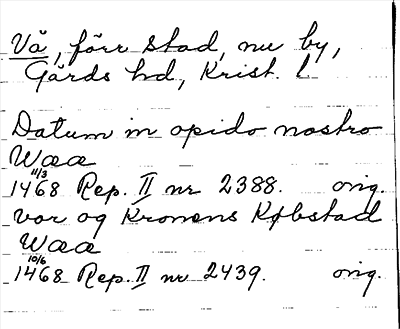 Vä, förr stad, nu by,
Gärds hd, Krist. l
Datum in opido nostro
Waa
11/3
1468 Rep. II nr 2388. orig.
vor og Kronens Købstad
Waa
10/6
1468 Rep. II nr 2439. orig.